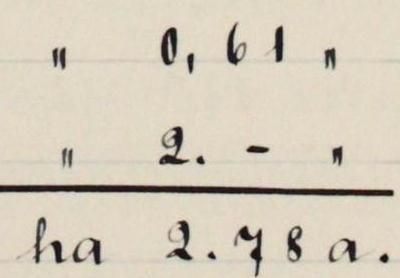 " 0,61 "
" 2. - "
ha 2.78 a.